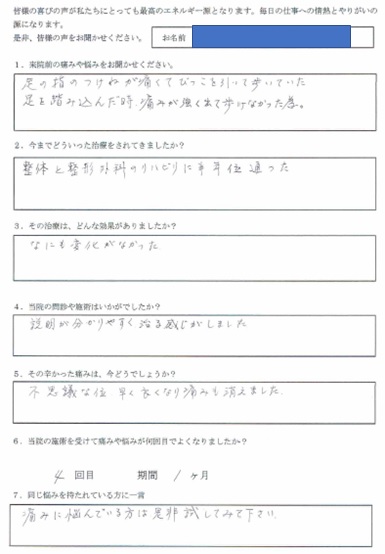 皆様の喜びの声が私たちにとっても最高のエネルギー源となります。毎日の仕事への情熱とやりがいの
源になります。
是非、皆様の声をお聞かせください。
お名前
1．来院前の痛みや悩みをお聞かせください。
足の指のつけねが痛くてびっこを引いて歩いていた
足を踏み込んだ時、痛みが強く出て歩けなかった
2．今までどういった治療をされてきましたか？
整体と整形外科のリハビリに半年位通った
3．その治療は、どんな効果がありましたか？
なにも変化がなかった
4．当院の問診や施術はいかがでしたか？
説明が分かりやすく治る感じがしました
5．その辛かった痛みは、今どうでしょうか？
不思議な位早く良くなり痛みも消えました.
6．当院の施術を受けて痛みや悩みが何回目でよくなりましたか？
4 回目 期間 1 ヶ月
7．同じ悩みを持たれている方に一言
痛みに悩んでいる方は是非試してみて下さい.